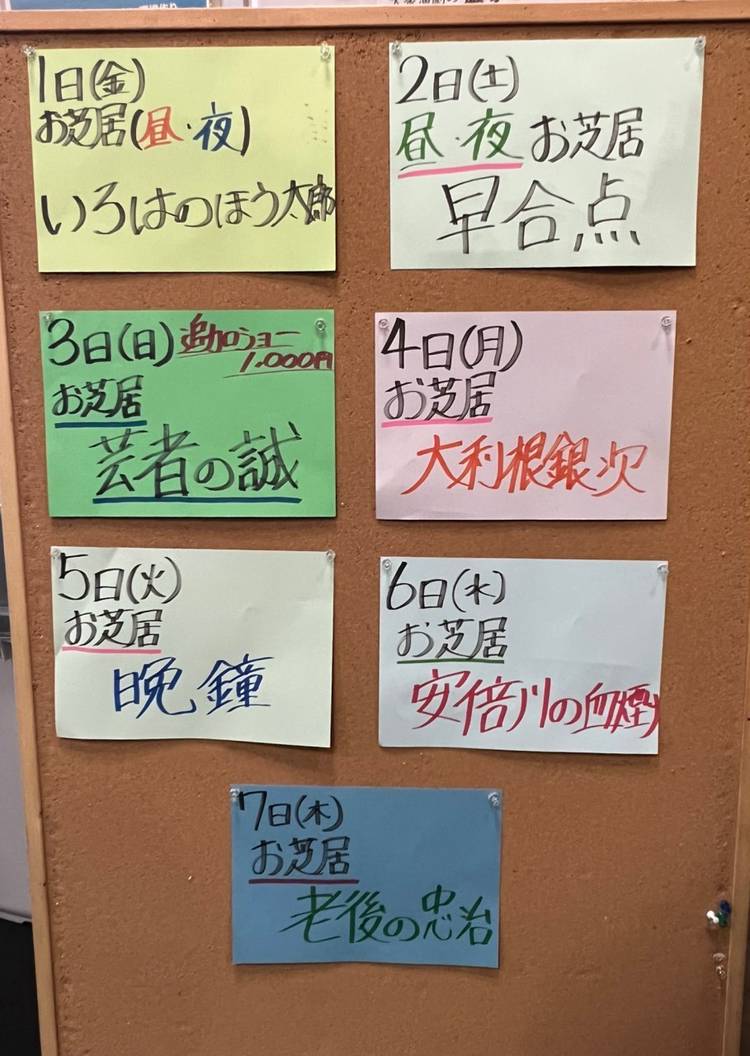 1日(金)
お芝居(昼・夜)
いろはのほう太郎
2日(土)
昼・夜 お芝居
早合点
3日(日) 追加ショー
1.000円
お芝居
芸者の誠
4日(月)
お芝居
大利根銀次
5日(火)
お芝居
晩鐘
6日(水)
お芝居
安倍川の血煙り
7日(木)
お芝居
老後の忠治